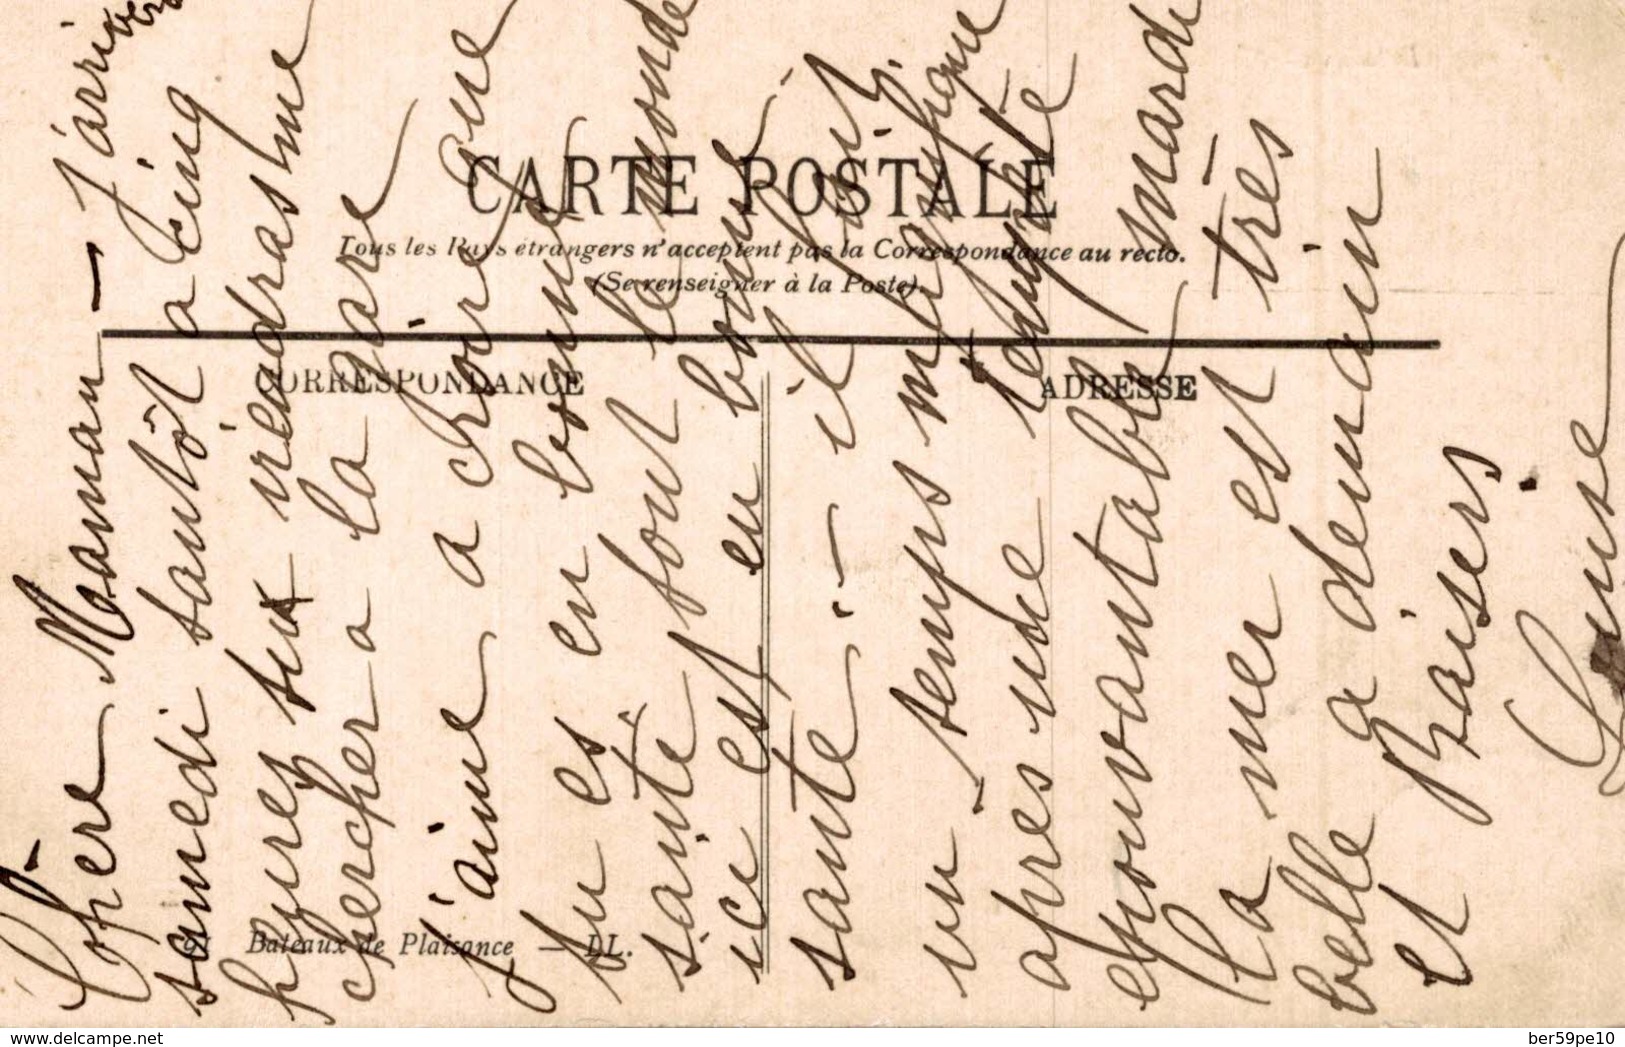 CARTE POSTALE
Tous les Pays étrangers n'acceptent pas la Correspondance au recto.
(Se renseigner à la Poste).
CORRESPONDANCE
ADRESSE
91 Bateaux de Plaisance — LL.
Chère Maman — J'arriverai
samedi santôt a cinq
heures tu viendras me
chercher a la gare
j'aime a croire que
tu es en bonne
santé tout le monde
ici est en bonne
santé — il fait
un temps magnifique
après une tempête
epouvantable mardi
la mer est très
belle a demain
et Baisers
Louise
www.delcampe.net
ber59pe10